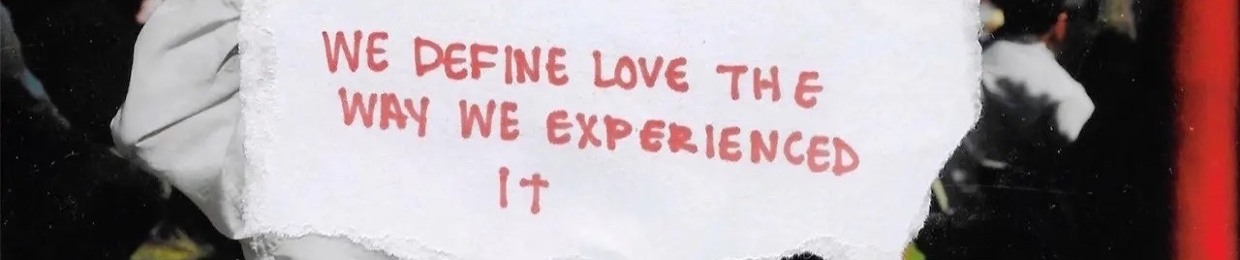 WE DEFINE LOVE THE
WAY WE EXPERIENCED
IT